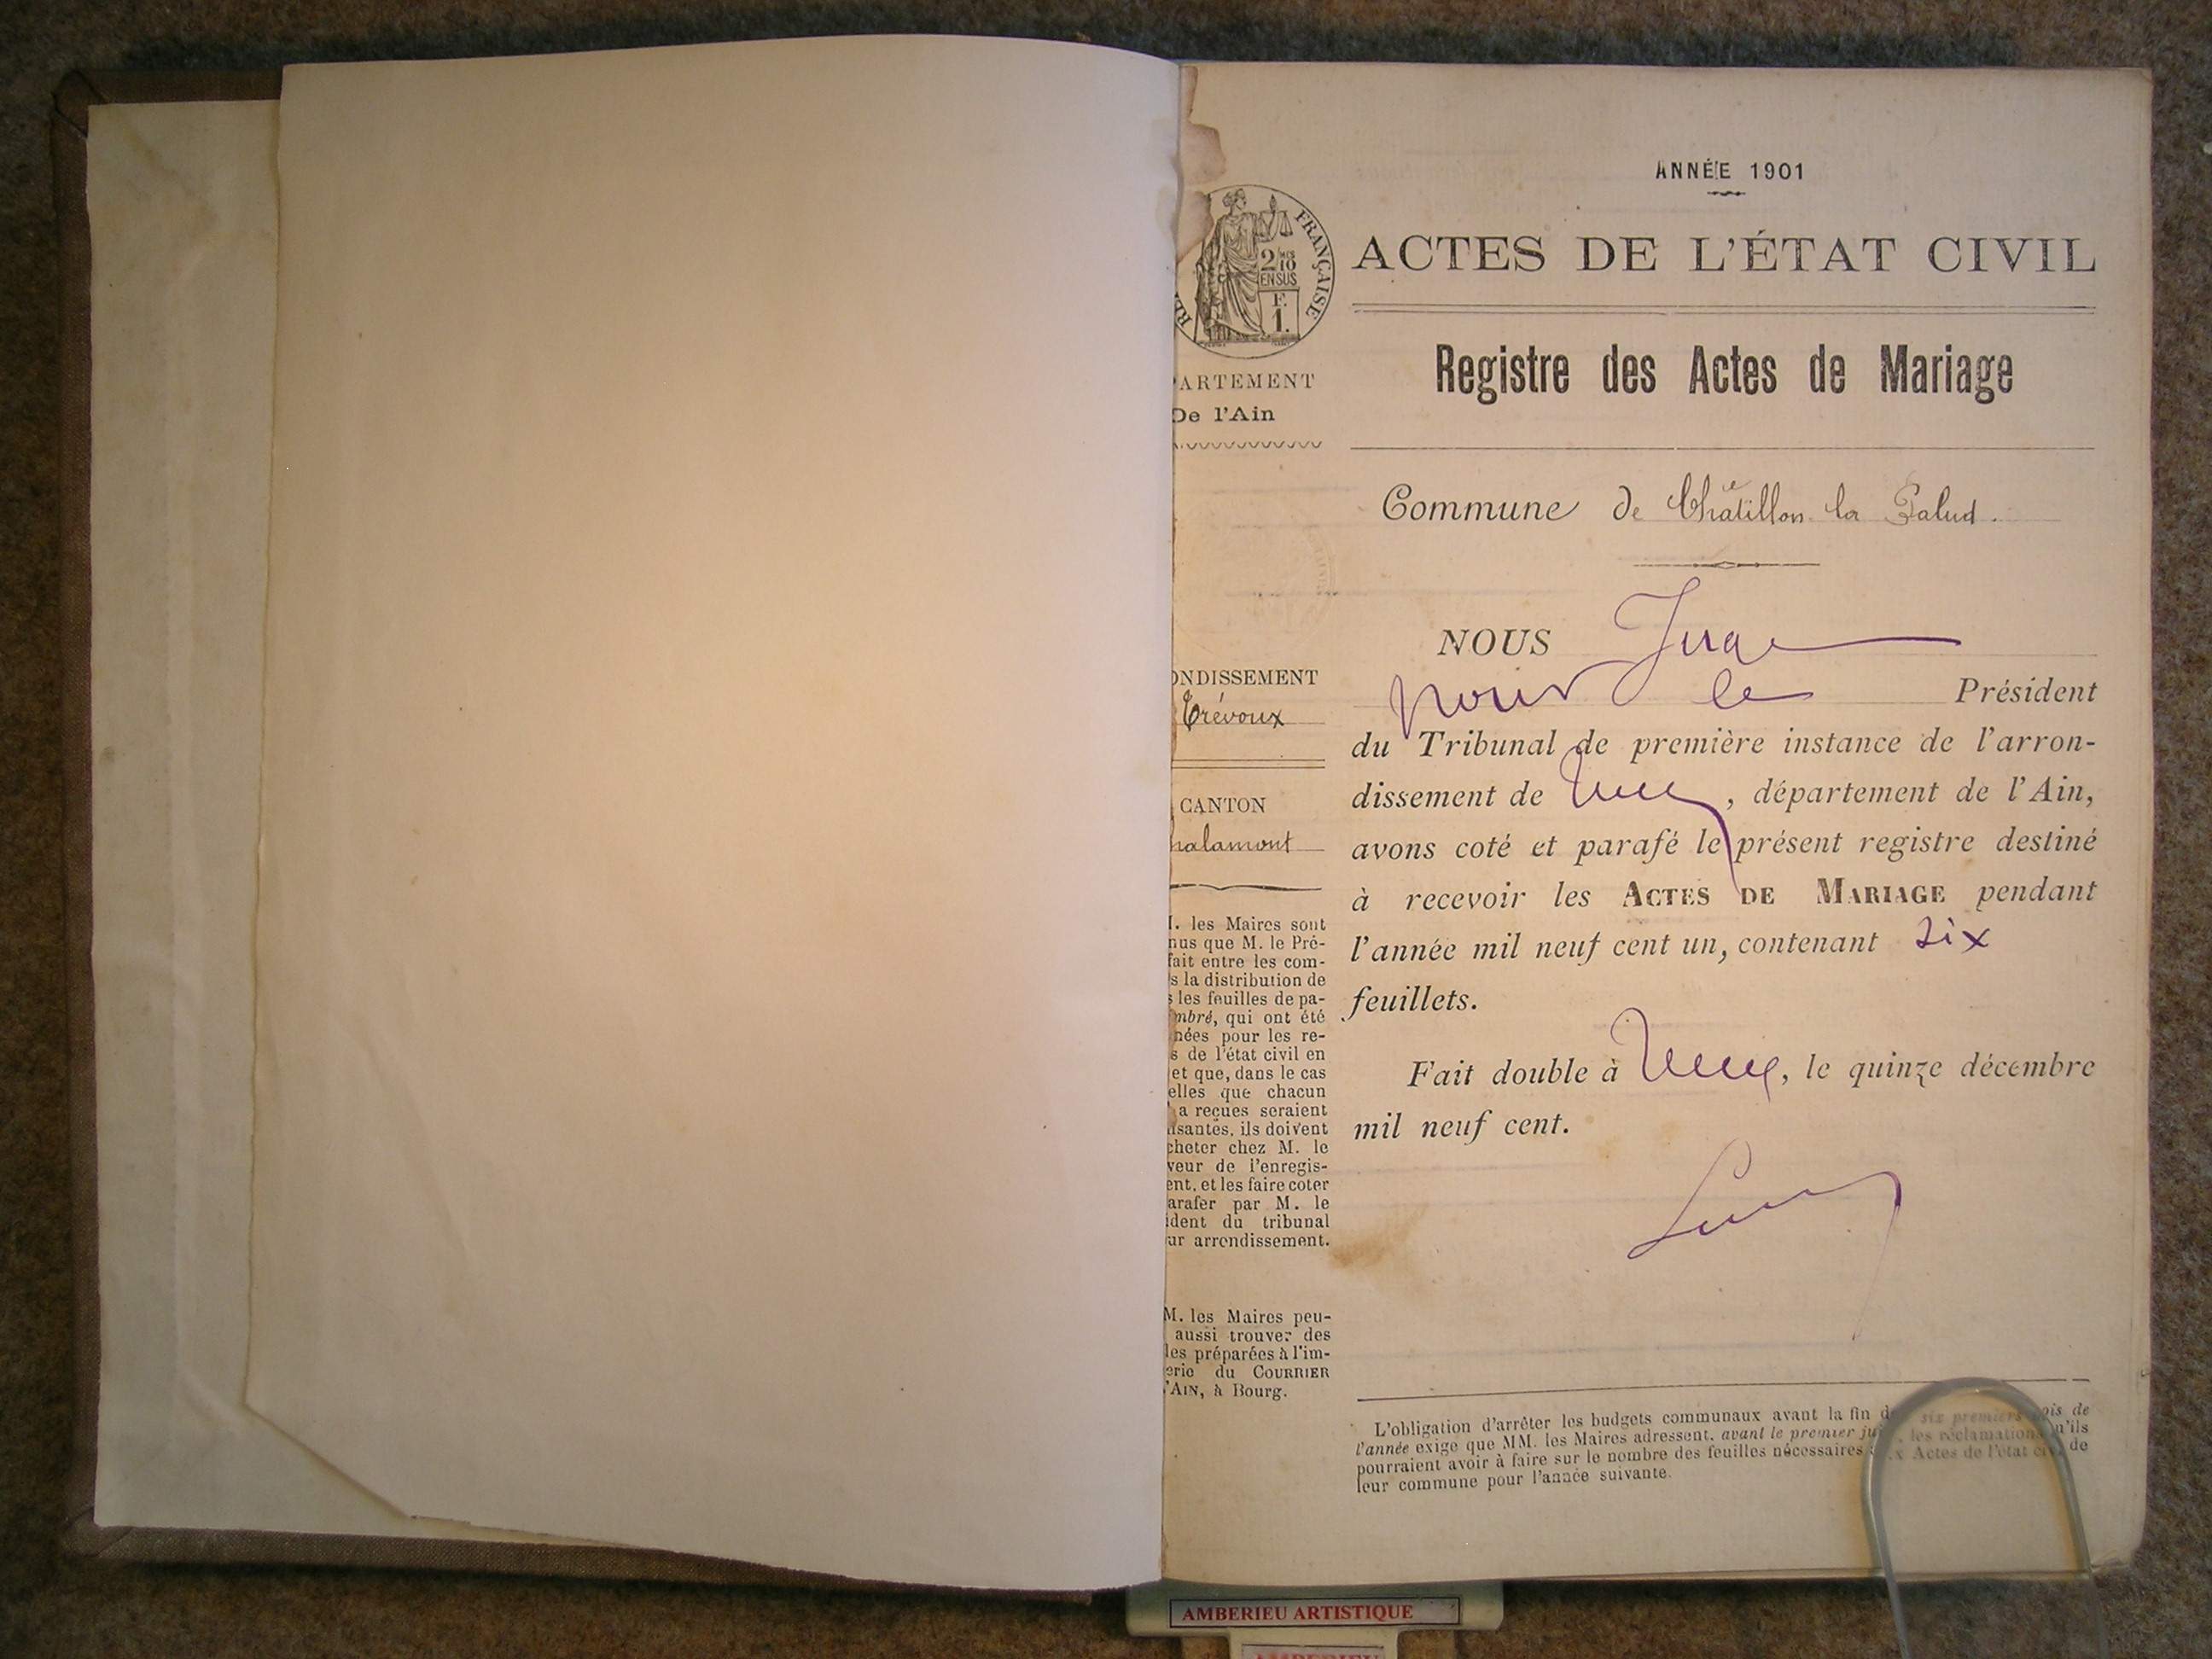 FRANÇAISE
2/10
EN SUS
F.
1.
ARTEMENT
De l'Ain
ONDISSEMENT
Trévoux
CANTON
halamont
les Maires sont
nus que M. le Pré-
fait entre les com-
s la distribution de
les feuilles de pa-
mbré, qui ont été
nées pour les re-
s de l'état civil en
et que, dans le cas
elles que chacun
a reçues seraient
isantes, ils doivent
cheter chez M. le
veur de l'enregis-
ent, et les faire coter
arafer par M. le
ident du tribunal
ur arrondissement.
M. les Maires peu-
aussi trouver des
les préparées à l'im-
erie du COURRIER
'AIN, à Bourg.
ANNÉE 1901
ACTES DE L'ÉTAT CIVIL
Registre des Actes de Mariage
Commune de Châtillon la Palud.
NOUS Juge
pour le Président
du Tribunal de première instance de l'arron-
dissement de , département de l'Ain,
avons coté et parafé le présent registre destiné
à recevoir les ACTES DE MARIAGE pendant
l'année mil neuf cent un, contenant six
feuillets.
Fait double à , le quinze décembre
mil neuf cent.
L'obligation d'arrêter les budgets communaux avant la fin des six premiers mois de
l'année exige que MM. les Maires adressent, avant le premier les réclamations qu'ils
pourraient avoir à faire sur le nombre des feuilles nécessaires aux Actes de l'état civil de
leur commune pour l'année suivante.
AMBERIEU ARTISTIQUE
AMBERIEU